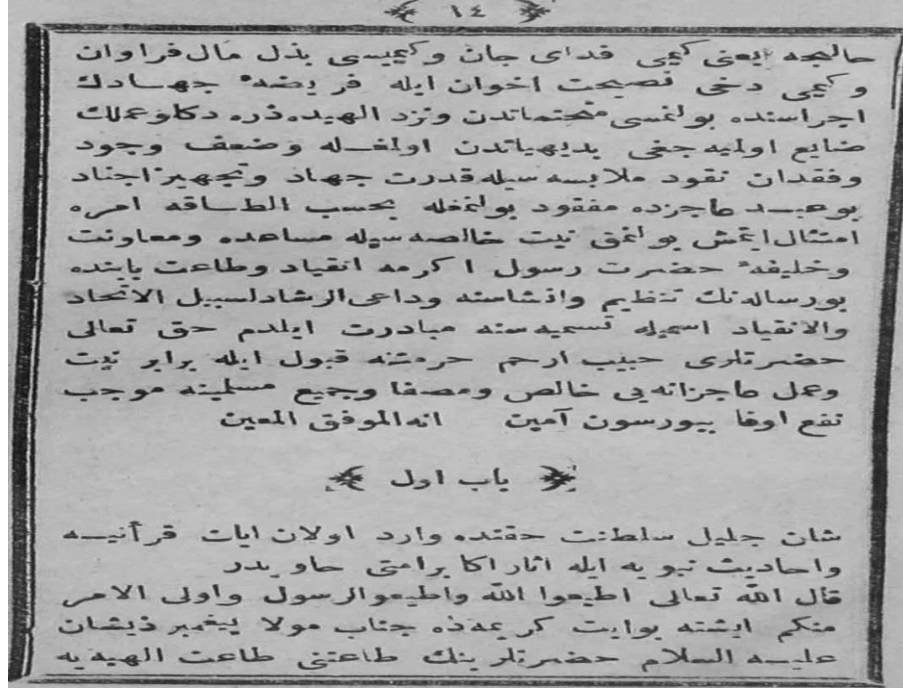 ﴿ ١٤ ﴾
حالنجه یعنی کیمی فدای جان وکیمیسی بذل مال فراوان
وکیمی دخی نصیحت اخوان ایله فریضهٔ جهادك
اجراسنده بولنمسی متحتماتدن ونزد الهیده ذره دکلو عملك
ضایع اولمیه جغی بدیهیاتدن اولمغله وضعف وجود
وفقدان نقود ملابسه سیله قدرت جهاد وتجهیز اجناد
بو عبد عاجزده مفقود بولنمغله بحسب الطاقه امره
امتثال ایتمش بولنمق نیت خالصه سیله مساعده ومعاونت
وخلیفهٔ حضرت رسول اکرمه انقیاد وطاعت بابنده
بو رساله نك تنظیم وانشاسنه وداعی الرشاد لسبیل الاتحاد
والانقیاد اسمیله تسمیه سنه مبادرت ایلدم حق تعالی
حضرتلری حبیب ارحم حرمتنه قبول ایله برابر نیت
وعمل عاجزانه یی خالص ومصفا وجمیع مسلمینه موجب
نفع اوفا بیورسون آمین انه الموفق المعین
﴿ باب اول ﴾
شان جلیل سلطنت حقنده وارد اولان ایات قرأنیه
واحادیث نبویه ایله اثار اکابر امتی حاویدر
قال الله تعالی اطیعوا الله واطیعو الرسول واولی الامر
منکم ایشته بوایت کریمه ده جناب مولا پیغمبر ذیشان
علیه السلام حضرتلرینك طاعتنی طاعت الهیه یه